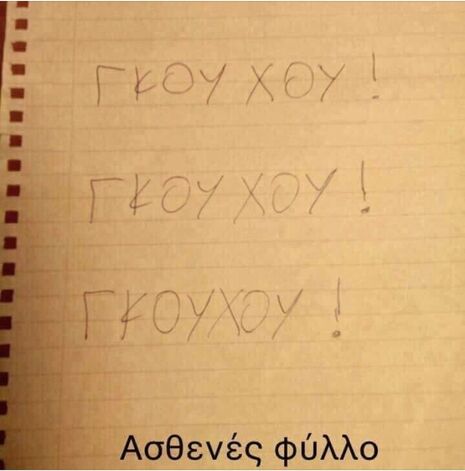 ΓΚΟΥ ΧΟΥ !
ΓΚΟΥ ΧΟΥ !
ΓΚΟΥΧΟΥ !
Ασθενές φύλλο